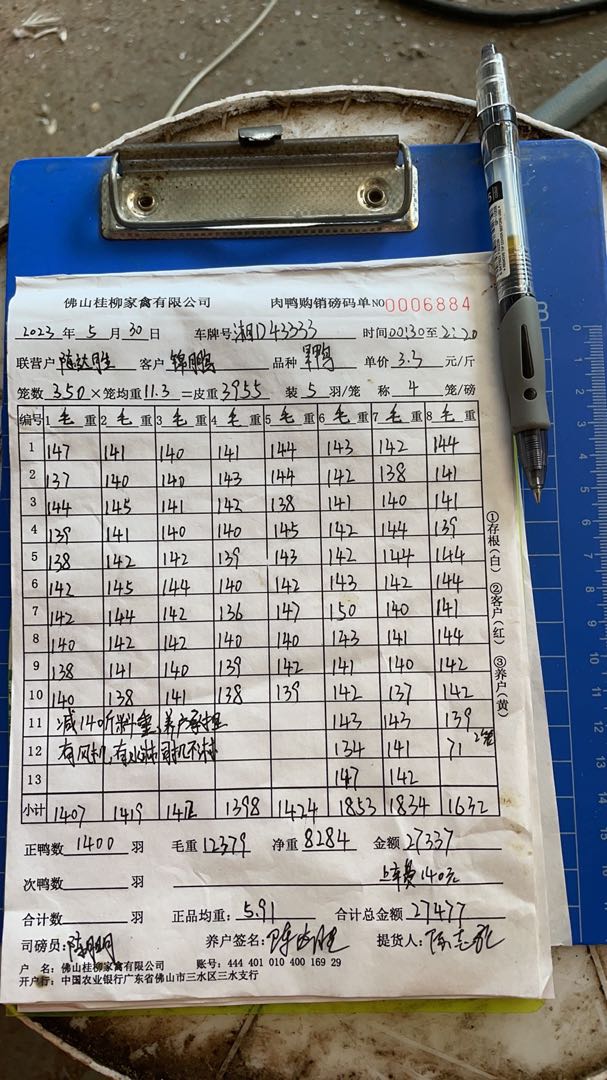 佛山桂柳家禽有限公司 肉鸭购销磅码单 NO 0006884
2023 年 5 月 30 日 车牌号 湘D43333 时间 00:30 至 2:20
联营户 陈达胜 客户 锦鹏 品种 黑鸭 单价 3.3 元/斤
笼数 350 ×笼均重 11.3 =皮重 3955 装 5 羽/笼 称 4 笼/磅
编号 1 毛 重 2 毛 重 3 毛 重 4 毛 重 5 毛 重 6 毛 重 7 毛 重 8 毛 重
1 147 141 140 141 144 143 142 144
2 137 140 140 143 144 142 138 141
3 144 145 141 142 138 141 140 141
4 139 141 140 140 145 142 144 139
5 138 142 142 139 143 142 144 144
6 142 145 144 140 142 143 142 144
7 142 144 142 136 147 150 140 141
8 140 142 142 140 140 143 141 144
9 138 141 140 139 142 141 140 142
10 140 138 141 138 139 142 137 142
11 减140斤料重,养户承担 143 143 139
12 有风机,有水淋,司机不淋 134 141 71 2笼
13 147 142
小计 1407 1419 1412 1398 1424 1853 1834 1632
正鸭数 1400 羽 毛重 12379 净重 8284 金额 27337
次鸭数 羽 上车费140元
合计数 羽 正品均重: 5.91 合计总金额 27477
司磅员: 养户签名: 陈达胜 提货人:
户 名: 佛山桂柳家禽有限公司 账号: 444 401 010 400 169 29
开户行: 中国农业银行广东省佛山市三水区三水支行
①存根(白) ②客户(红) ③养户(黄)